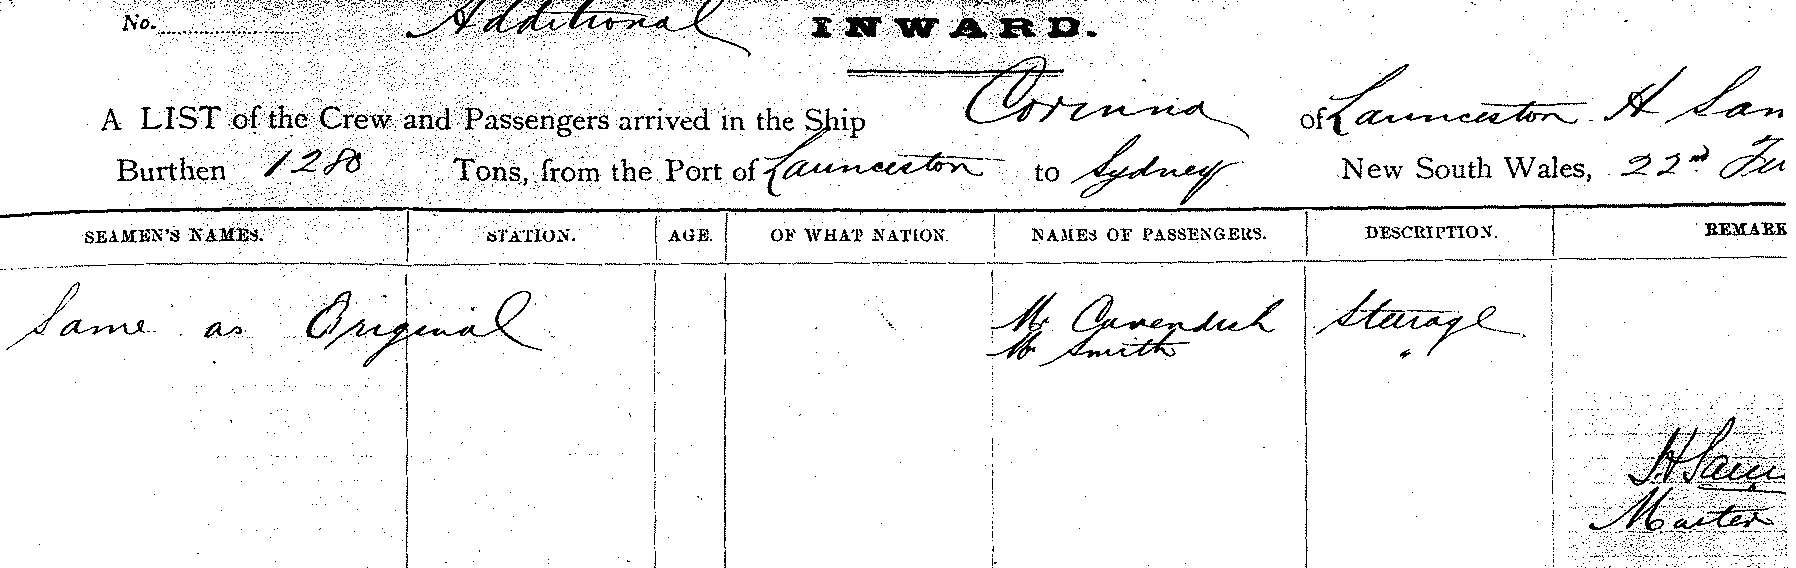 No. Additional INWARD.
A LIST of the Crew and Passengers arrived in the Ship Corinna of Launceston H
Burthen 1280 Tons, from the Port of Launceston to Sydney New South Wales, 22nd
SEAMEN'S NAMES. STATION. AGE. OF WHAT NATION. NAMES OF PASSENGERS. DESCRIPTION. REMARK
Same as Original Mr Cavendish Steerage
Mr Smith "
H
Master